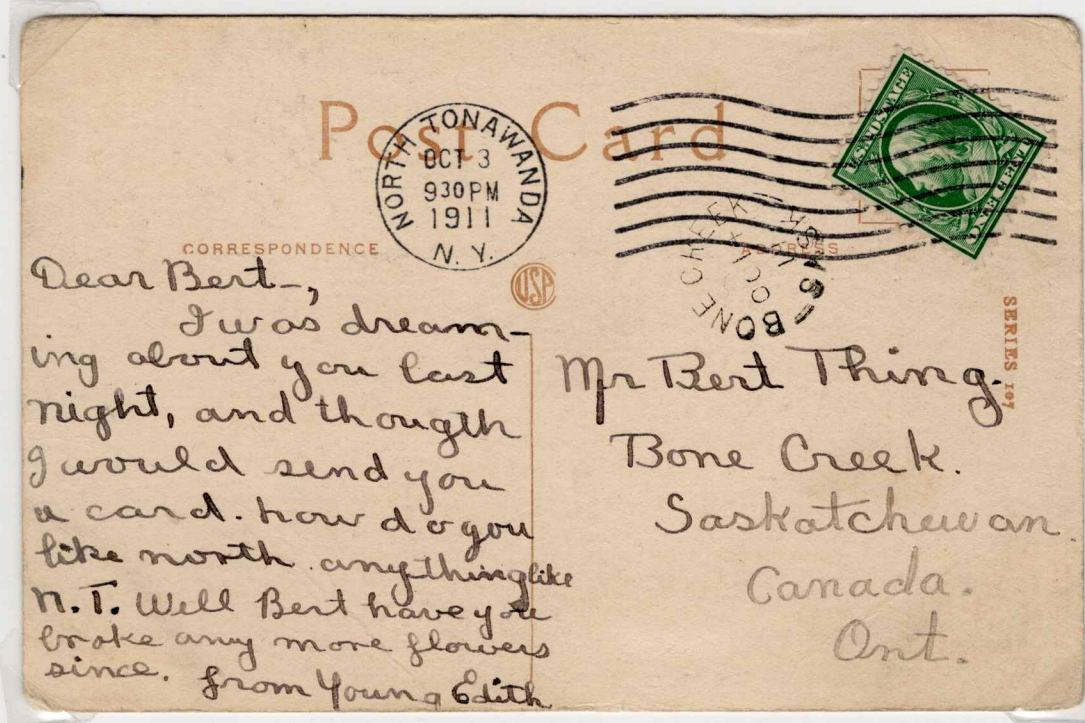 Post Card
NORTH TONAWANDA
OCT 3
930PM
1911
N.Y.
U.S. POSTAGE
CORRESPONDENCE
ADDRESS
USP
BONE CREEK
OC
SERIES 107
Dear Bert-,
I was dream-
ing about you last
night, and thougth
I would send you
a card. how do you
like north anything like
N.T. Well Bert have you
broke any more flowers
since. from Young Edith
Mr Bert Thing.
Bone Creek.
Saskatchewan
Canada.
Ont.